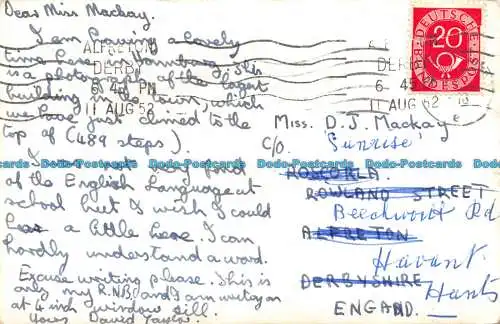 Dear Miss Mackay.
I am having a lovely
time here in Hamburg. This
is a photograph of the tallest
building in the town, which
we have just climed to the
top of (489 steps).
very good
of the English Language at
school but I wish I could
a little I can
hardly understand a word.
Excuse writing please. This is
only my R.N.B. and I am writing on
a 4 inch window sill.
Yours David Taylor.
ALFRETON
DERBY
6 45 PM
11 AUG 52
DERBY
6- 45
11 AUG 52
DEUTSCHE
BUNDESPOST
20
Miss. D. J. Mackay
C/o. Sunrise
ROSCORLA.
ROWLAND STREET
Beechworth Rd
ALFRETON
Havant.
DERBYSHIRE
Hants
ENGAND.
Dodo-Postcards Dodo-Postcards Dodo-Postcards Dodo-Postcards Dodo-Postcards